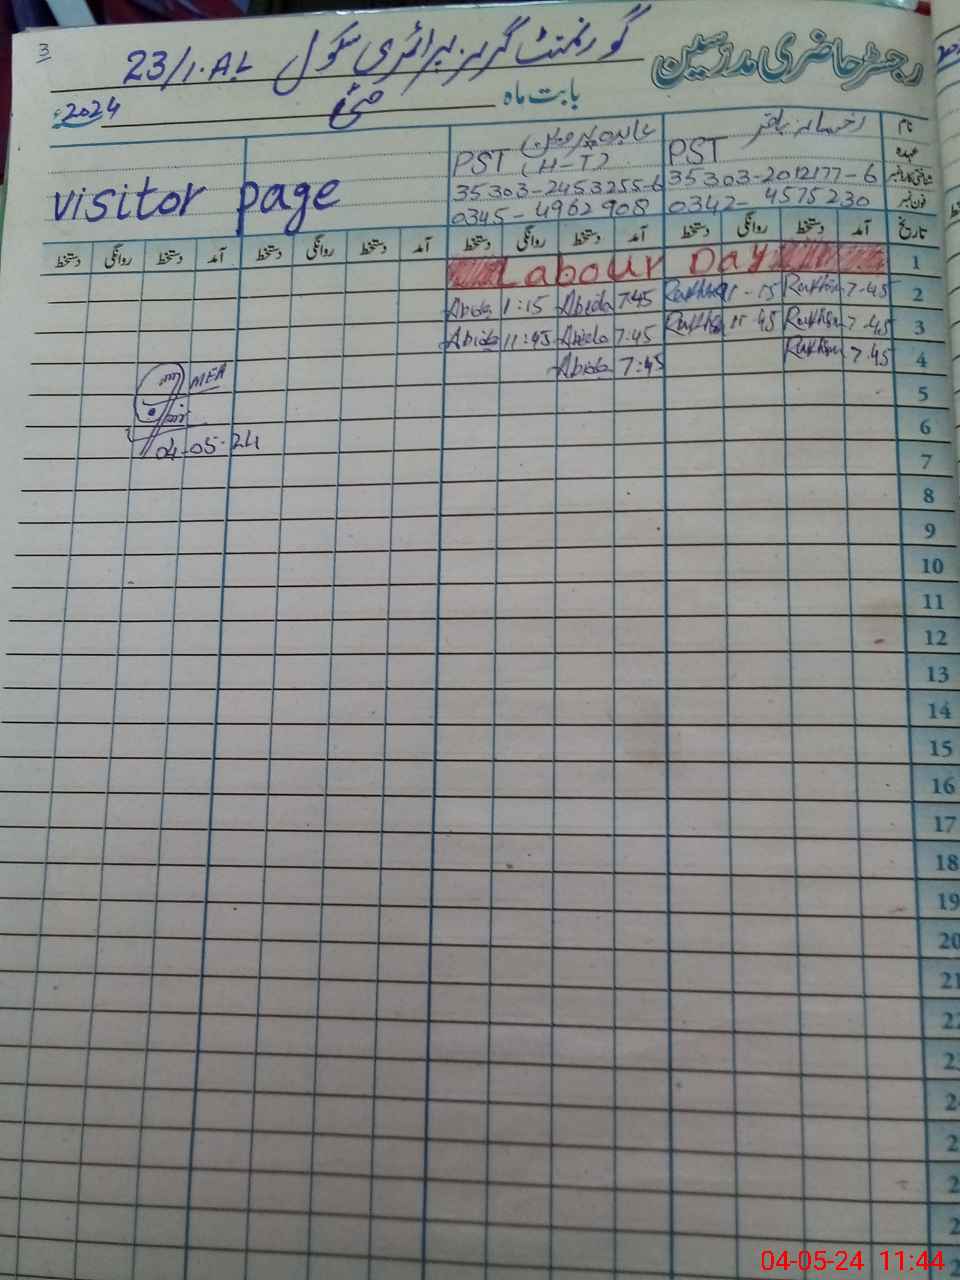 3
رجسٹر حاضری مدرسین گورنمنٹ گرلز پرائمری سکول 23/1.AL
بابت ماہ مئی 2024ء
نام رخسانہ
عہدہ PST PST (H-T)
35303-2012177-6 35303-2453255-6
0342-4575230 0345-4962908
visitor page
تاریخ آمد دستخط روانگی دستخط آمد دستخط روانگی دستخط آمد دستخط روانگی دستخط آمد دستخط روانگی دستخط
1 Labour Day
2 7-45 1-15 7:45 Abida 1:15 Abida
3 7-45 11-45 7:45 Abida 11:45 Abida
4 7.45 7:45 Abida
MEA
5
6
04-05-24
7
8
9
10
11
12
13
14
15
16
17
18
19
20
21
22
04-05-24 11:44